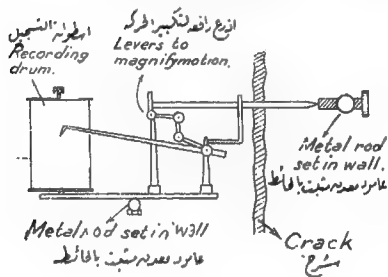 اسطوانة التسجيل
Recording
drum.
اذرع رافعة لتكبير الحركة
Levers to
magnify motion.
Metal rod
set in wall.
عامود معدنى مثبت بالحائط
Metal rod set in wall
عامود معدنى مثبت بالحائط
Crack
شرخ